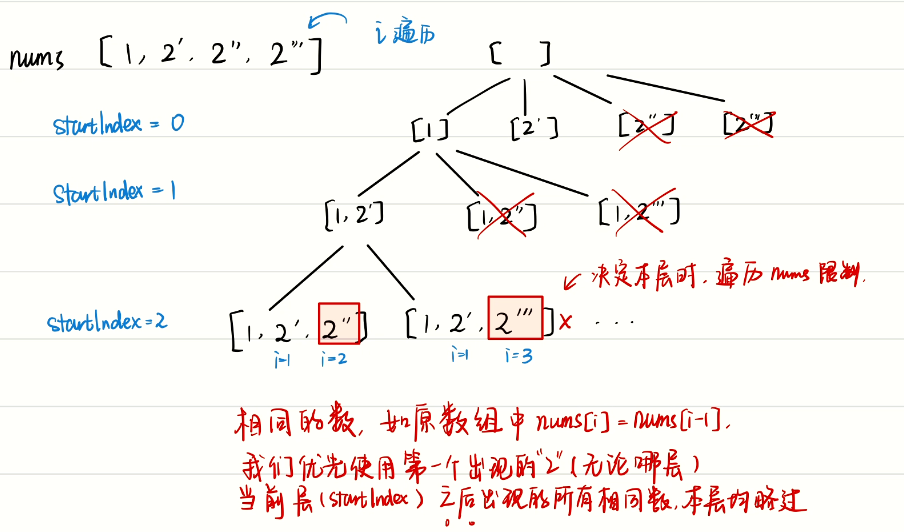 nums [ 1, 2′, 2″, 2‴ ] i 遍历
[ ]
startIndex = 0 [1] [2′] [2″] [2‴]
startIndex = 1 [1, 2′] [1, 2″] [1, 2‴]
决定本层时, 遍历 nums 限制.
startIndex=2 [1, 2′, 2″] [1, 2′, 2‴] × ...
i=1 i=2 i=1 i=3
相同的数, 如原数组中 nums[i] = nums[i-1],
我们优先使用第一个出现的"2"(无论哪层)
当前层(startIndex) 之后出现的所有相同数, 本层均略过